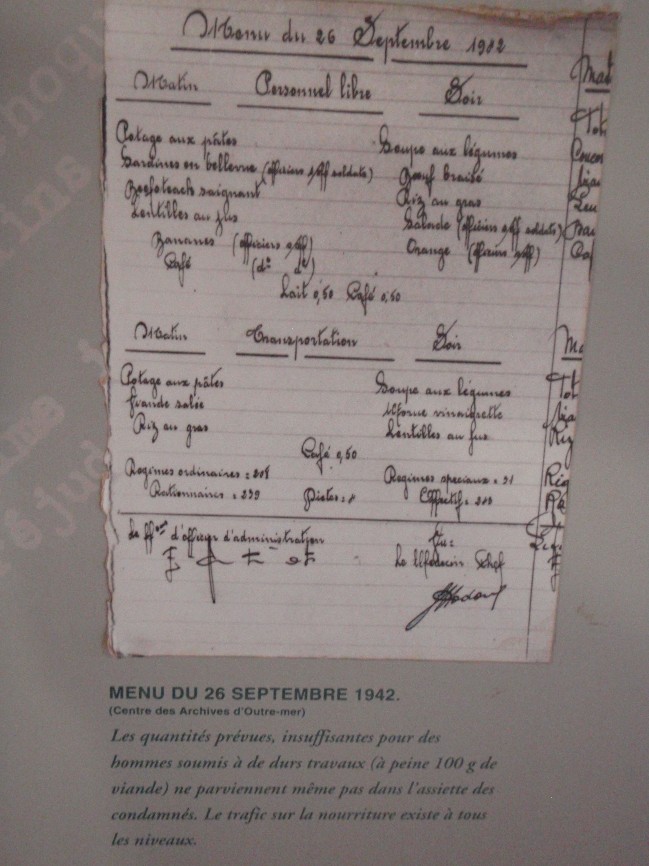 Menu du 26 Septembre 1942
Matin Personnel libre Soir
Potage aux pâtes Soupe aux légumes
Sardines en bellevue (officiers s/off soldats) Bœuf braisé
Beefsteack saignant Riz au gras
Lentilles au jus Salade (officiers s/off soldats)
Bananes (officiers s/off) Orange (officiers s/off)
Café (do do)
Lait 0,50 Café 0,50
Matin Transportation Soir
Potage aux pâtes Soupe aux légumes
Viande salée Morue vinaigrette
Riz au gras Lentilles au jus
Café 0,50
Régimes ordinaires = 208 Régimes spéciaux = 31
Rationnaires = 239 Diètes = Effectif =
Le d'officier d'administration Vu:
Le Médecin Chef
MENU DU 26 SEPTEMBRE 1942.
(Centre des Archives d'Outre-mer)
Les quantités prévues, insuffisantes pour des
hommes soumis à de durs travaux (à peine 100 g de
viande) ne parviennent même pas dans l'assiette des
condamnés. Le trafic sur la nourriture existe à tous
les niveaux.